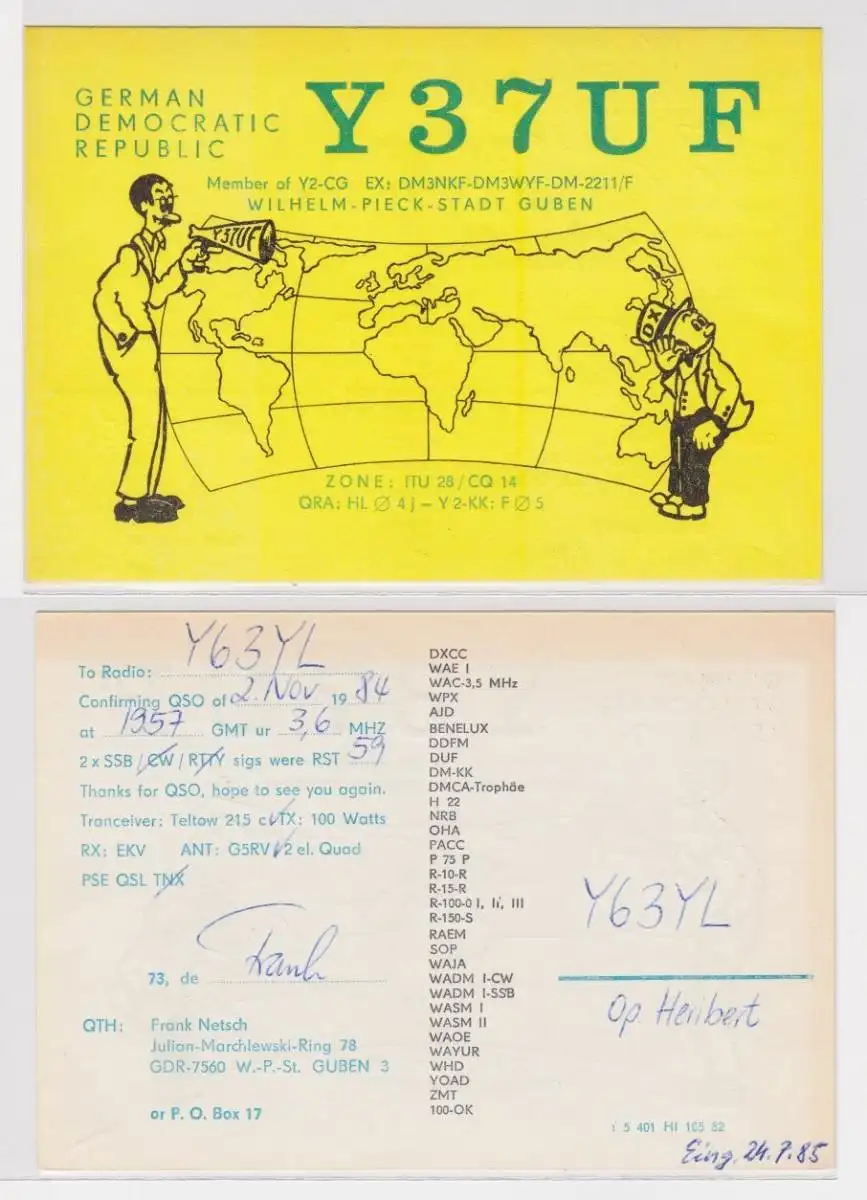 GERMAN
DEMOCRATIC
REPUBLIC
Y37UF
Member of Y2-CG EX: DM3NKF-DM3WYF-DM-2211/F
WILHELM-PIECK-STADT GUBEN
Y37UF
DX
ZONE: ITU 28/CQ 14
QRA: HL Ø 4 j – Y 2-KK: F Ø 5
To Radio: Y63YL
Confirming QSO of 2. Nov 19 84
at 1957 GMT ur 3,6 MHZ
2 x SSB / CW / RTTY sigs were RST 59
Thanks for QSO, hope to see you again.
Tranceiver: Teltow 215 c TX: 100 Watts
RX: EKV ANT: G5RV 2 el. Quad
PSE QSL TNX
73, de Frank
QTH: Frank Netsch
Julian-Marchlewski-Ring 78
GDR-7560 W.-P.-St. GUBEN 3
or P. O. Box 17
DXCC
WAE I
WAC-3,5 MHz
WPX
AJD
BENELUX
DDFM
DUF
DM-KK
DMCA-Trophäe
H 22
NRB
OHA
PACC
P 75 P
R-10-R
R-15-R
R-100-0 I, II, III
R-150-S
RAEM
SOP
WAJA
WADM I-CW
WADM I-SSB
WASM I
WASM II
WAOE
WAYUR
WHD
YOAD
ZMT
100-OK
Y63YL
Op. Heribert
5 401 HI 105 82
Eing. 24.7.85